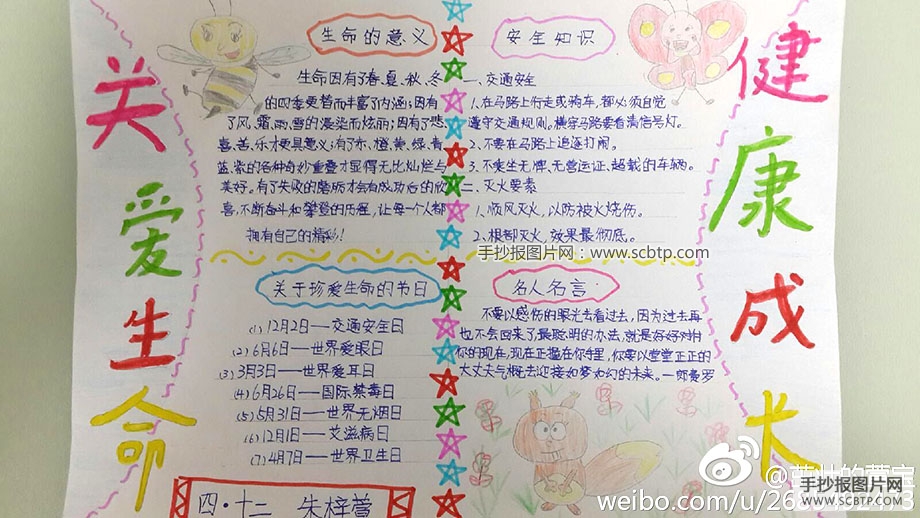 关爱生命
健康成长
生命的意义
生命因有了春、夏、秋、冬
的四季更替而丰富了内涵;因有
了风、霜、雨、雪的浸染而炫丽;因有了悲、
喜、苦、乐才更具意义;有了赤、橙、黄、绿、青
蓝、紫的各种奇妙重叠才显得无比灿烂与
美好。有了失败的磨砺才会有成功后的欣
喜,不断奋斗和攀登的历程,让每一个人都
拥有自己的精彩!
安全知识
一、交通安全
1.在马路上行走或骑车,都必须自觉
遵守交通规则。横穿马路要看清信号灯。
2.不要在马路上追逐打闹。
3.不乘坐无牌、无营运证、超载的车辆。
二、灭火要素
1、顺风灭火,以防被火烧伤。
2、根部灭火,效果最彻底。
手抄报图片网:www.scbtp.com
关于珍爱生命的节日
(1)12月2日——交通安全日
(2)6月6日——世界爱眼日
(3)3月3日——世界爱耳日
(4)6月26日——国际禁毒日
(5)5月31日——世界无烟日
(6)12月1日——艾滋病日
(7)4月7日——世界卫生日
名人名言
不要以感伤的眼光去看过去,因为过去再
也不会回来了,最聪明的办法,就是好好对付
你的现在,现在正握在你手里,你要以堂堂正正的
大丈夫气概去迎接如梦如幻的未来。—郎费罗
四·十二 朱梓萱
weibo.com/u/26
手抄报图片网
WWW.SCBTP.COM